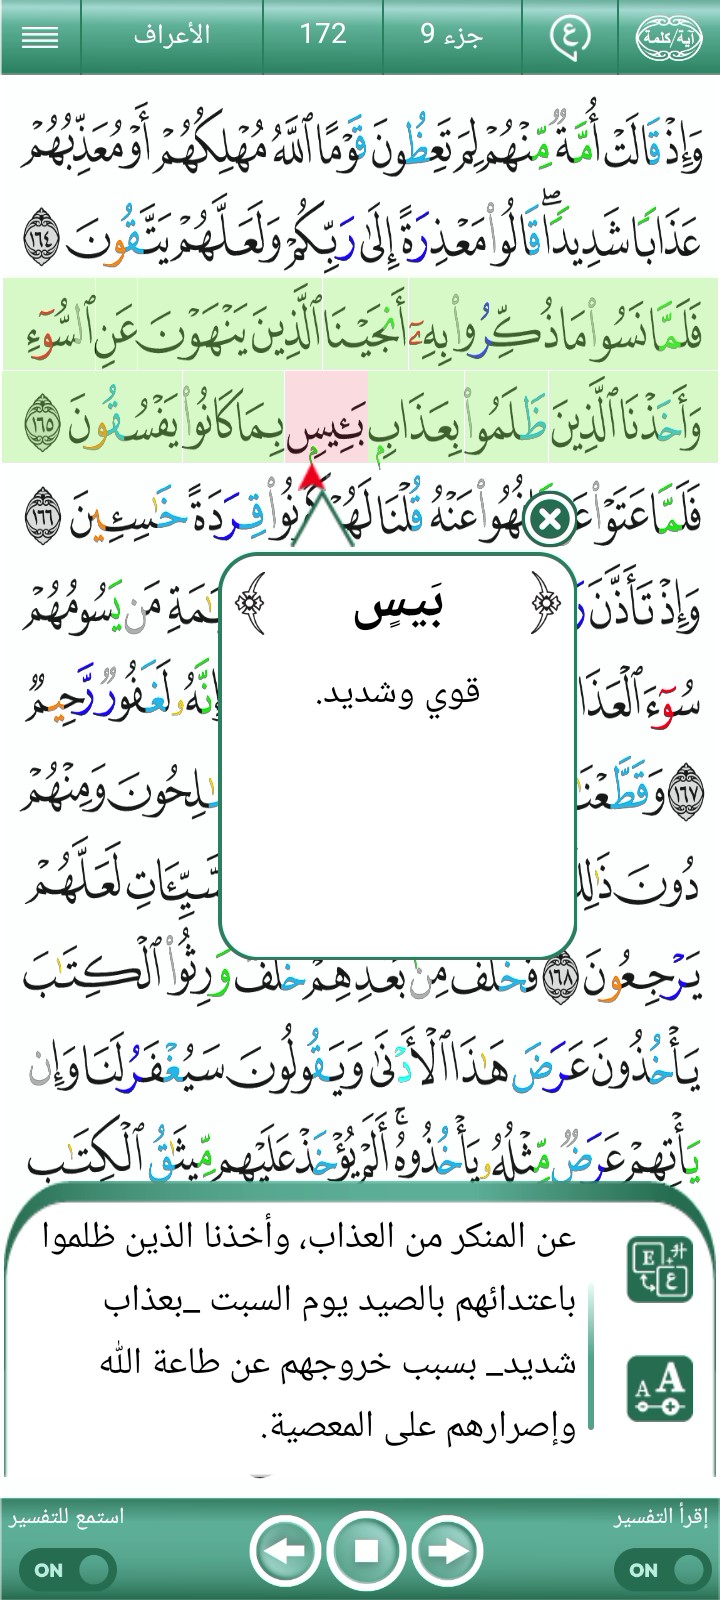 آية/كلمة ع جزء 9 172 الأعراف
وَإِذْ قَالَتْ أُمَّةٌ مِّنْهُمْ لِمَ تَعِظُونَ قَوْمًا اللَّهُ مُهْلِكُهُمْ أَوْ مُعَذِّبُهُمْ
عَذَابًا شَدِيدًا ۖ قَالُوا۟ مَعْذِرَةً إِلَىٰ رَبِّكُمْ وَلَعَلَّهُمْ يَتَّقُونَ ١٦٤
فَلَمَّا نَسُوا۟ مَا ذُكِّرُوا۟ بِهِۦٓ أَنجَيْنَا ٱلَّذِينَ يَنْهَوْنَ عَنِ ٱلسُّوٓءِ
وَأَخَذْنَا ٱلَّذِينَ ظَلَمُوا۟ بِعَذَابٍۭ بَـِٔيسٍۭ بِمَا كَانُوا۟ يَفْسُقُونَ ١٦٥
فَلَمَّا عَتَوْا۟ نُهُوا۟ عَنْهُ قُلْنَا لَهُمْ كُونُوا۟ قِرَدَةً خَـٰسِـِٔينَ ١٦٦
بَيسٍ
قوي وشديد.
وَإِذْ تَأَذَّنَ مَن يَسُومُهُمْ
سُوٓءَ ٱلْعَذَا إِنَّهُۥ لَغَفُورٌ رَّحِيمٌ
١٦٧ وَقَطَّعْنَـ ـلِحُونَ وَمِنْهُمْ
دُونَ ذَٰلِكَ لَعَلَّهُمْ
يَرْجِعُونَ ١٦٨ فَخَلَفَ مِنۢ بَعْدِهِمْ خَلْفٌ وَرِثُوا۟ ٱلْكِتَـٰبَ
يَأْخُذُونَ عَرَضَ هَـٰذَا ٱلْأَدْنَىٰ وَيَقُولُونَ سَيُغْفَرُ لَنَا وَإِن
يَأْتِهِمْ عَرَضٌ مِّثْلُهُۥ يَأْخُذُوهُ ۚ أَلَمْ يُؤْخَذْ عَلَيْهِم مِّيثَـٰقُ ٱلْكِتَـٰبِ
عن المنكر من العذاب، وأخذنا الذين ظلموا
باعتدائهم بالصيد يوم السبت _بعذاب
شديد_ بسبب خروجهم عن طاعة الله
وإصرارهم على المعصية.
E ع
A A
إقرأ التفسير استمع للتفسير
ON ON